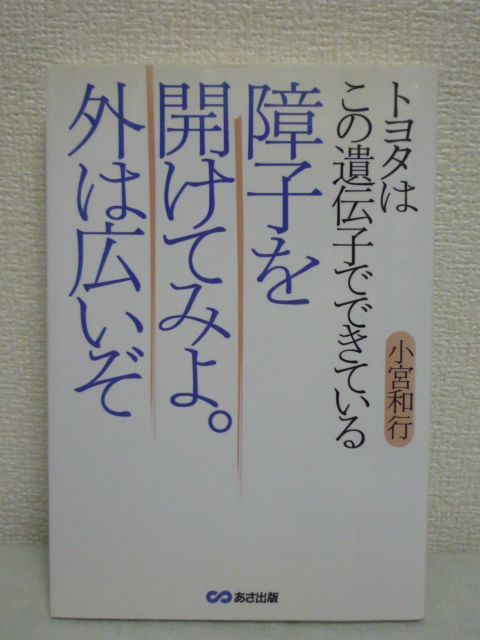 トヨタは
この遺伝子でできている
小宮和行
障子を
開けてみよ。
外は広いぞ
あさ出版